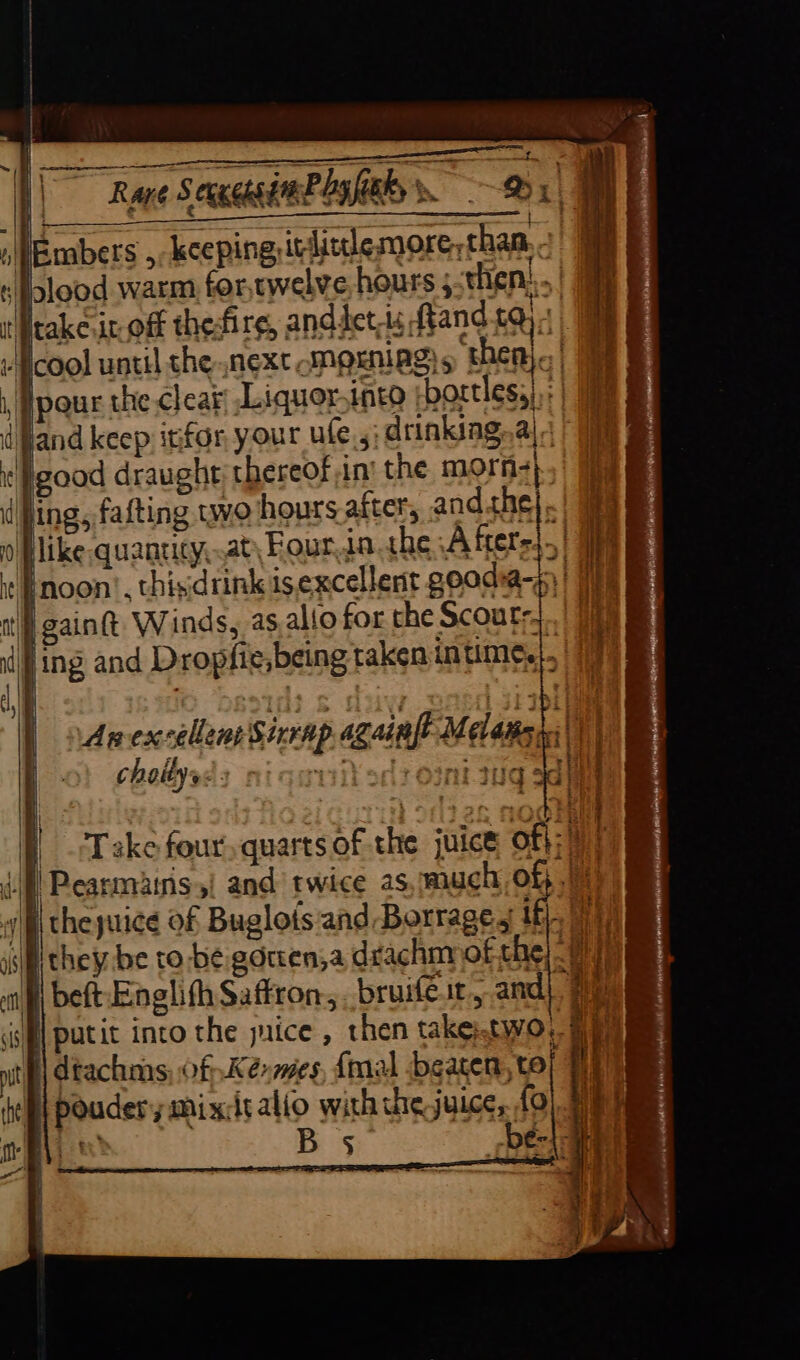 Rare Secrets in Phyſick, 9
Embers, keeping it little more, than
blood warm for twelve hours; then
take it off the fire, and let is ſtand to
cool until the next morning, then
pour the clear Liquor into bottles,
and keep it for your uſe; drinking a
good draught thereof in the morn-
ing, faſting two hours after, and the
like quantity at Four in the After-
noon, this drink is excellent good a-
gainſt Winds, as alſo for the Scour-
ing and Dropſie, being taken in time.
An excellent Sirrup againſt Melan-
cholly.
Take four quarts of the juice of
Pearmains, and twice as much of
the juice of Bugloſs and Borrage, if
they be to be gotten, a drachm of the
beſt Engliſh Saffron, bruiſe it, and
put it into the juice, then take two
drachms of Kermes, ſmal beaten, to
pouder, mix it alſo with the juice, ſo
B 5 be-